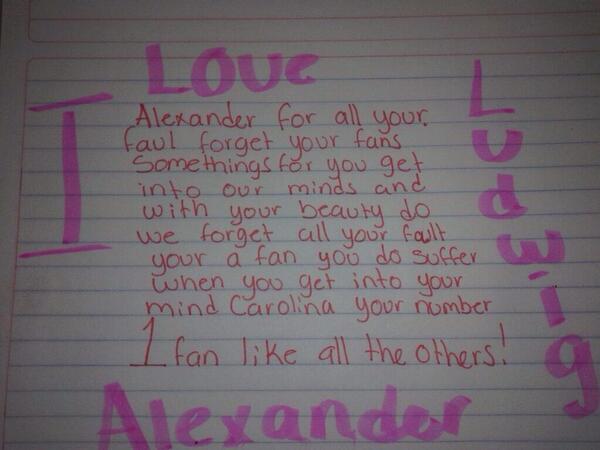 I
Love
Alexander for all your.
faul forget your fans
Somethings for you get
into our minds and
with your beauty do
we forget all your fault
your a fan you do suffer
when you get into your
mind Carolina your number
1 fan like all the others!
Alexander
Ludwig